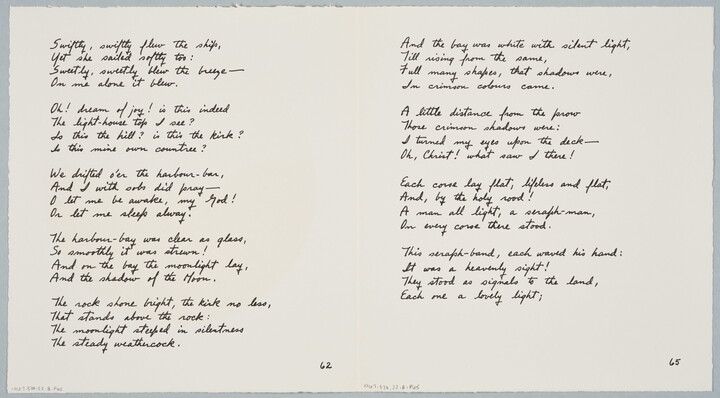 Swiftly, swiftly flew the ship,
Yet she sailed softly too:
Sweetly, sweetly blew the breeze—
On me alone it blew.
Oh! dream of joy! is this indeed
The light-house top I see?
Is this the hill? is this the kirk?
Is this mine own countree?
We drifted o'er the harbour-bar,
And I with sobs did pray—
O let me be awake, my God!
Or let me sleep alway.
The harbour-bay was clear as glass,
So smoothly it was strewn!
And on the bay the moonlight lay,
And the shadow of the Moon.
The rock shone bright, the kirk no less,
That stands above the rock:
The moonlight steeped in silentness
The steady weathercock.
62
And the bay was white with silent light,
Till rising from the same,
Full many shapes, that shadows were,
In crimson colours came.
A little distance from the prow
Those crimson shadows were:
I turned my eyes upon the deck—
Oh, Christ! what saw I there!
Each corse lay flat, lifeless and flat,
And, by the holy rood!
A man all light, a seraph-man,
On every corse there stood.
This seraph-band, each waved his hand:
It was a heavenly sight!
They stood as signals to the land,
Each one a lovely light;
65